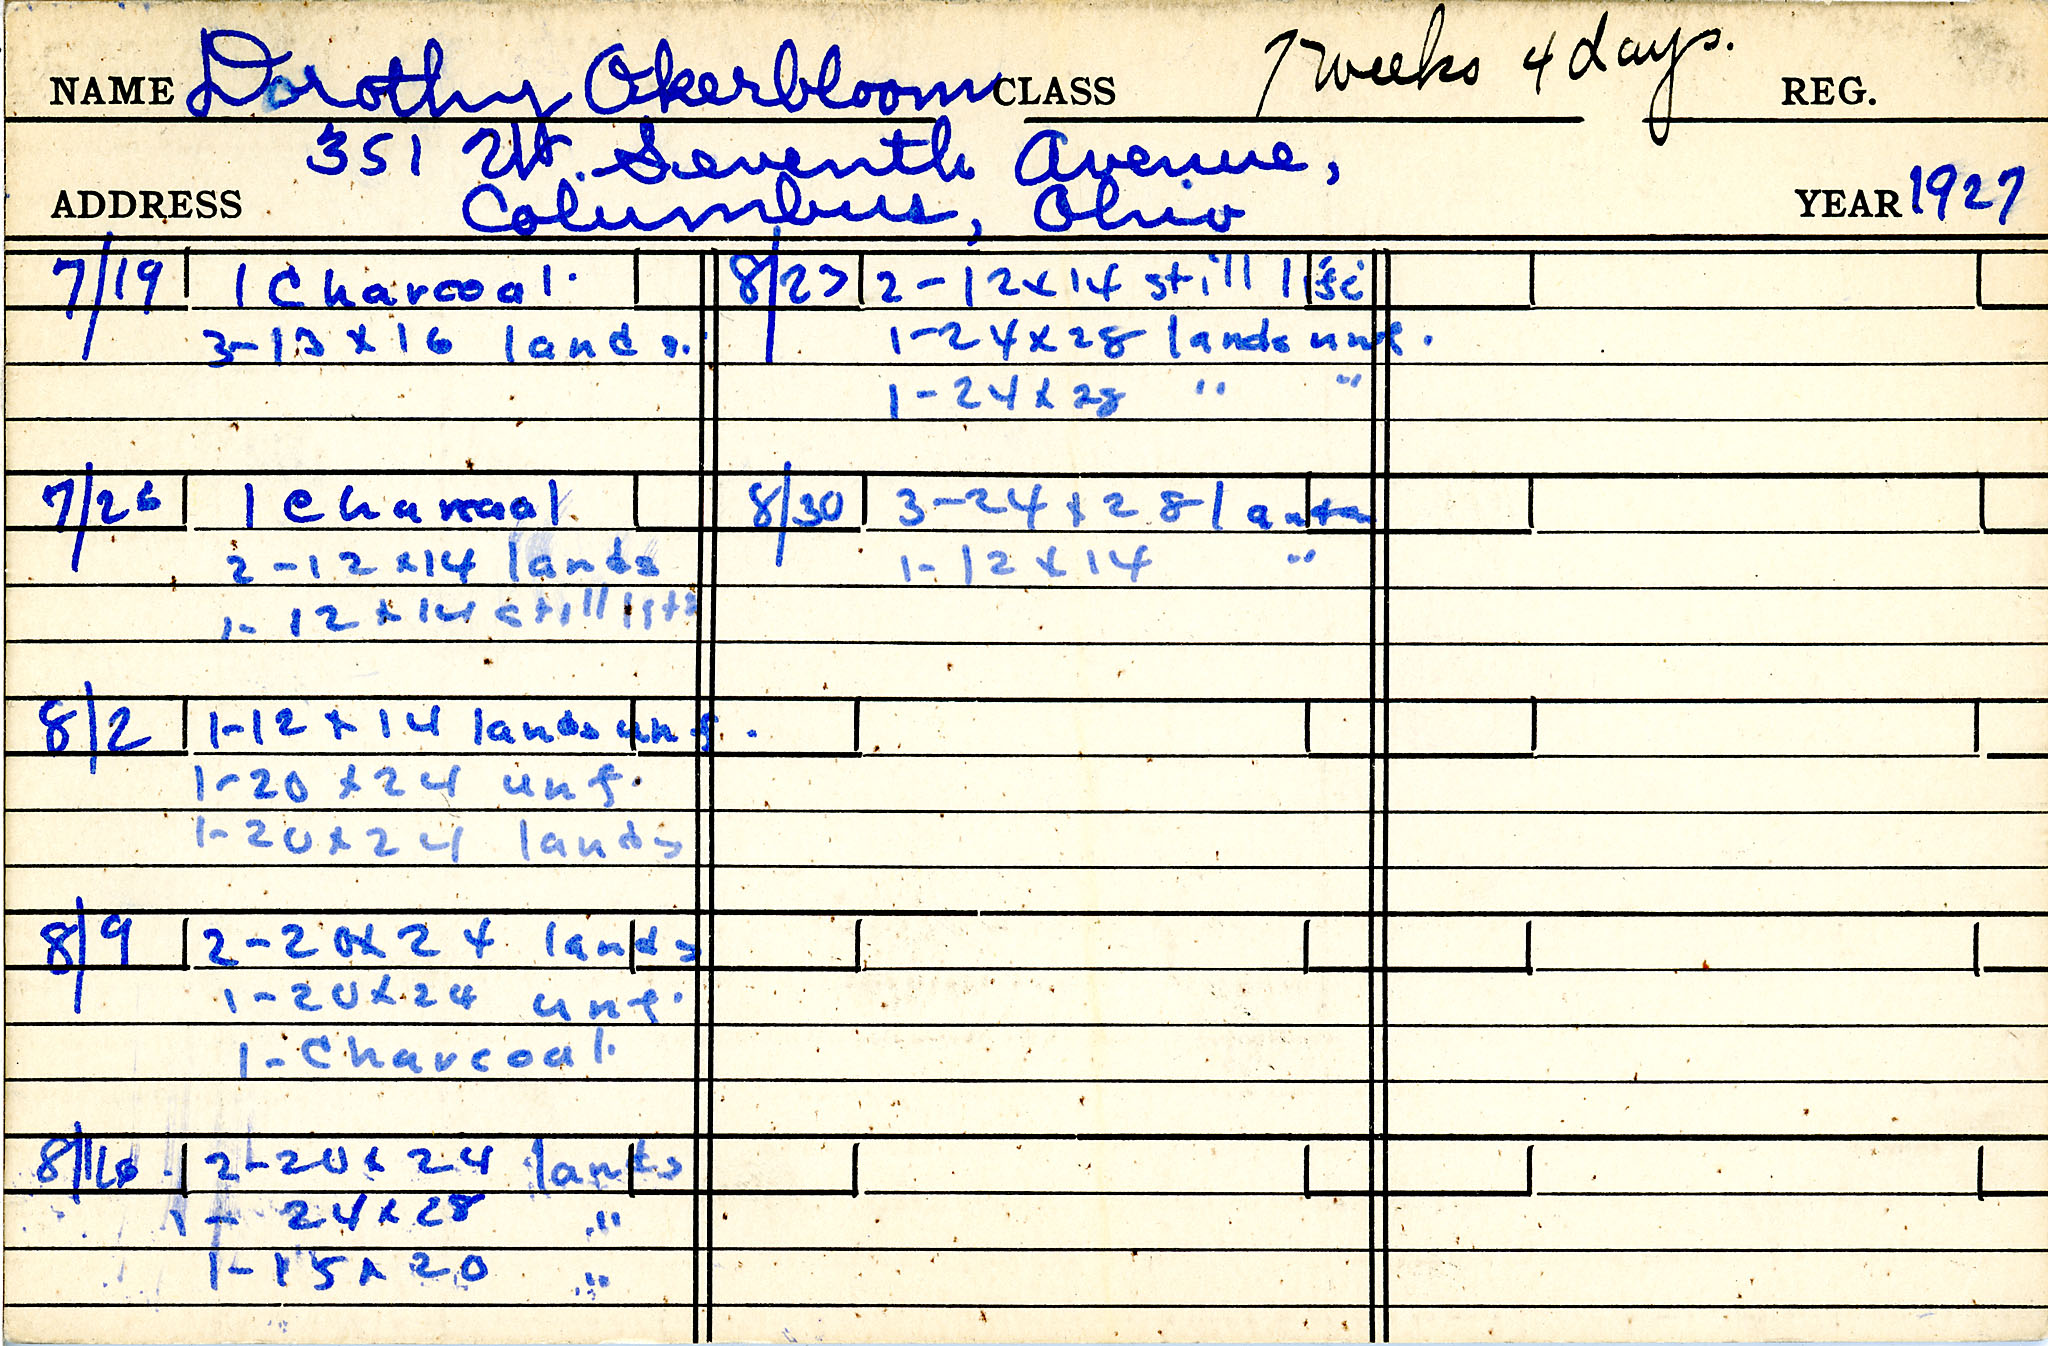 NAME Dorothy Okerbloom CLASS 7 weeks 4 days. REG.
351 W. Seventh Avenue,
ADDRESS Columbus, Ohio YEAR 1927
7/19 1 Charcoal.
3-13x16 lands.
7/26 1 Charcoal
2-12x14 lands
1-12x14 still life
8/2 1-12x14 lands unf.
1-20x24 unf.
1-20x24 lands
8/9 2-20x24 lands
1-20x24 unf.
1-Charcoal.
8/16 2-20x24 lands
1-24x28 "
1-15x20 "
8/23 2-12x14 still life
1-24x28 lands unf.
1-24x28 " "
8/30 3-24x28 lands
1-12x14 "